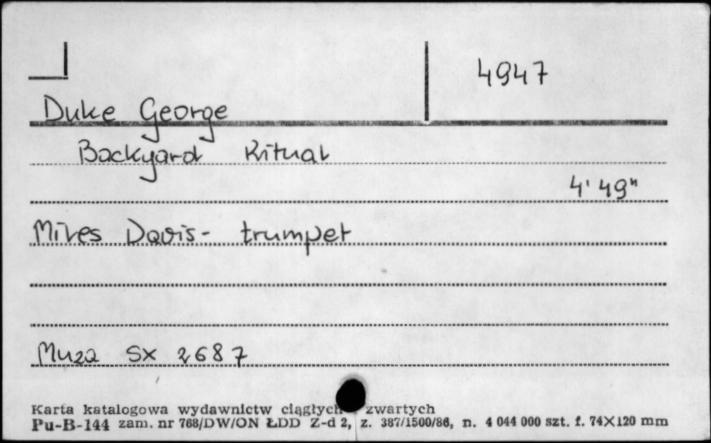 4947
Duke George
Backyard Ritual
4'49"
Miles Davis - trumpet
Muza SX 2687
Karta katalogowa wydawnictw ciągłych zwartych
Pu-B-144 zam. nr 768/DW/ON ŁDD Z-d 2, z. 387/1500/86, n. 4 044 000 szt. f. 74X120 mm